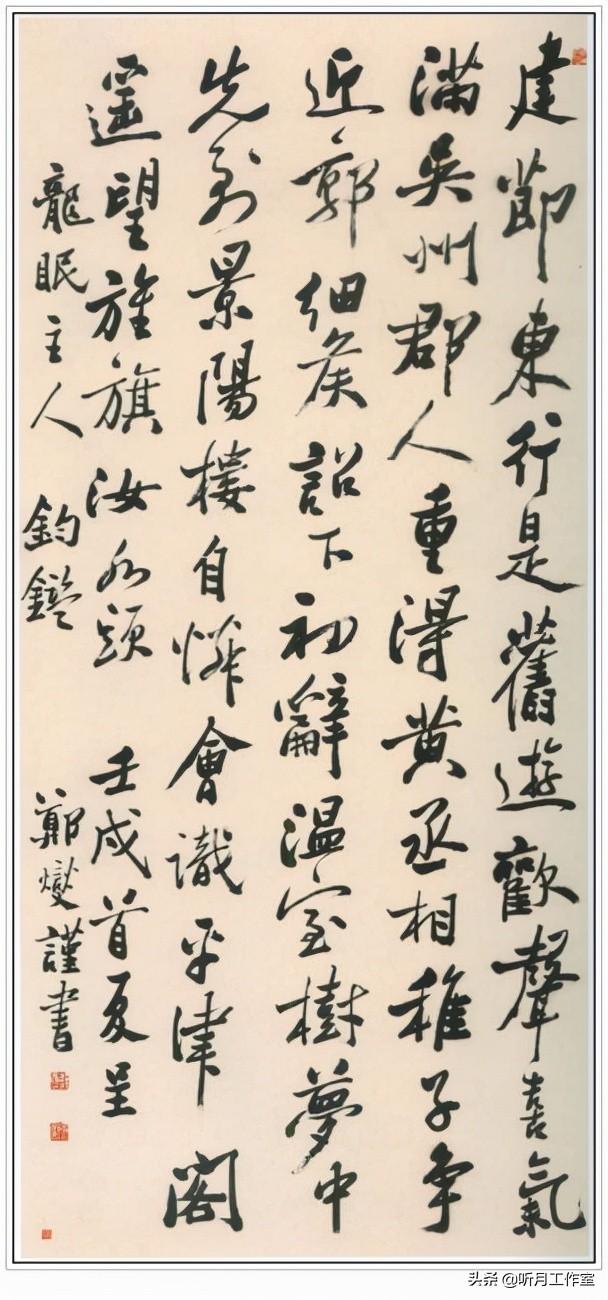 建節東行是舊遊歡聲喜氣
滿吳州郡人重得黃丞相稚子爭
近郭細侯詔下初辭温室樹夢中
先到景陽樓自憐會識平津閣
遥望旌旗汝水頭 壬戌首夏呈
龍眠主人 鈞鑒 鄭燮謹書
头条 @听月工作室